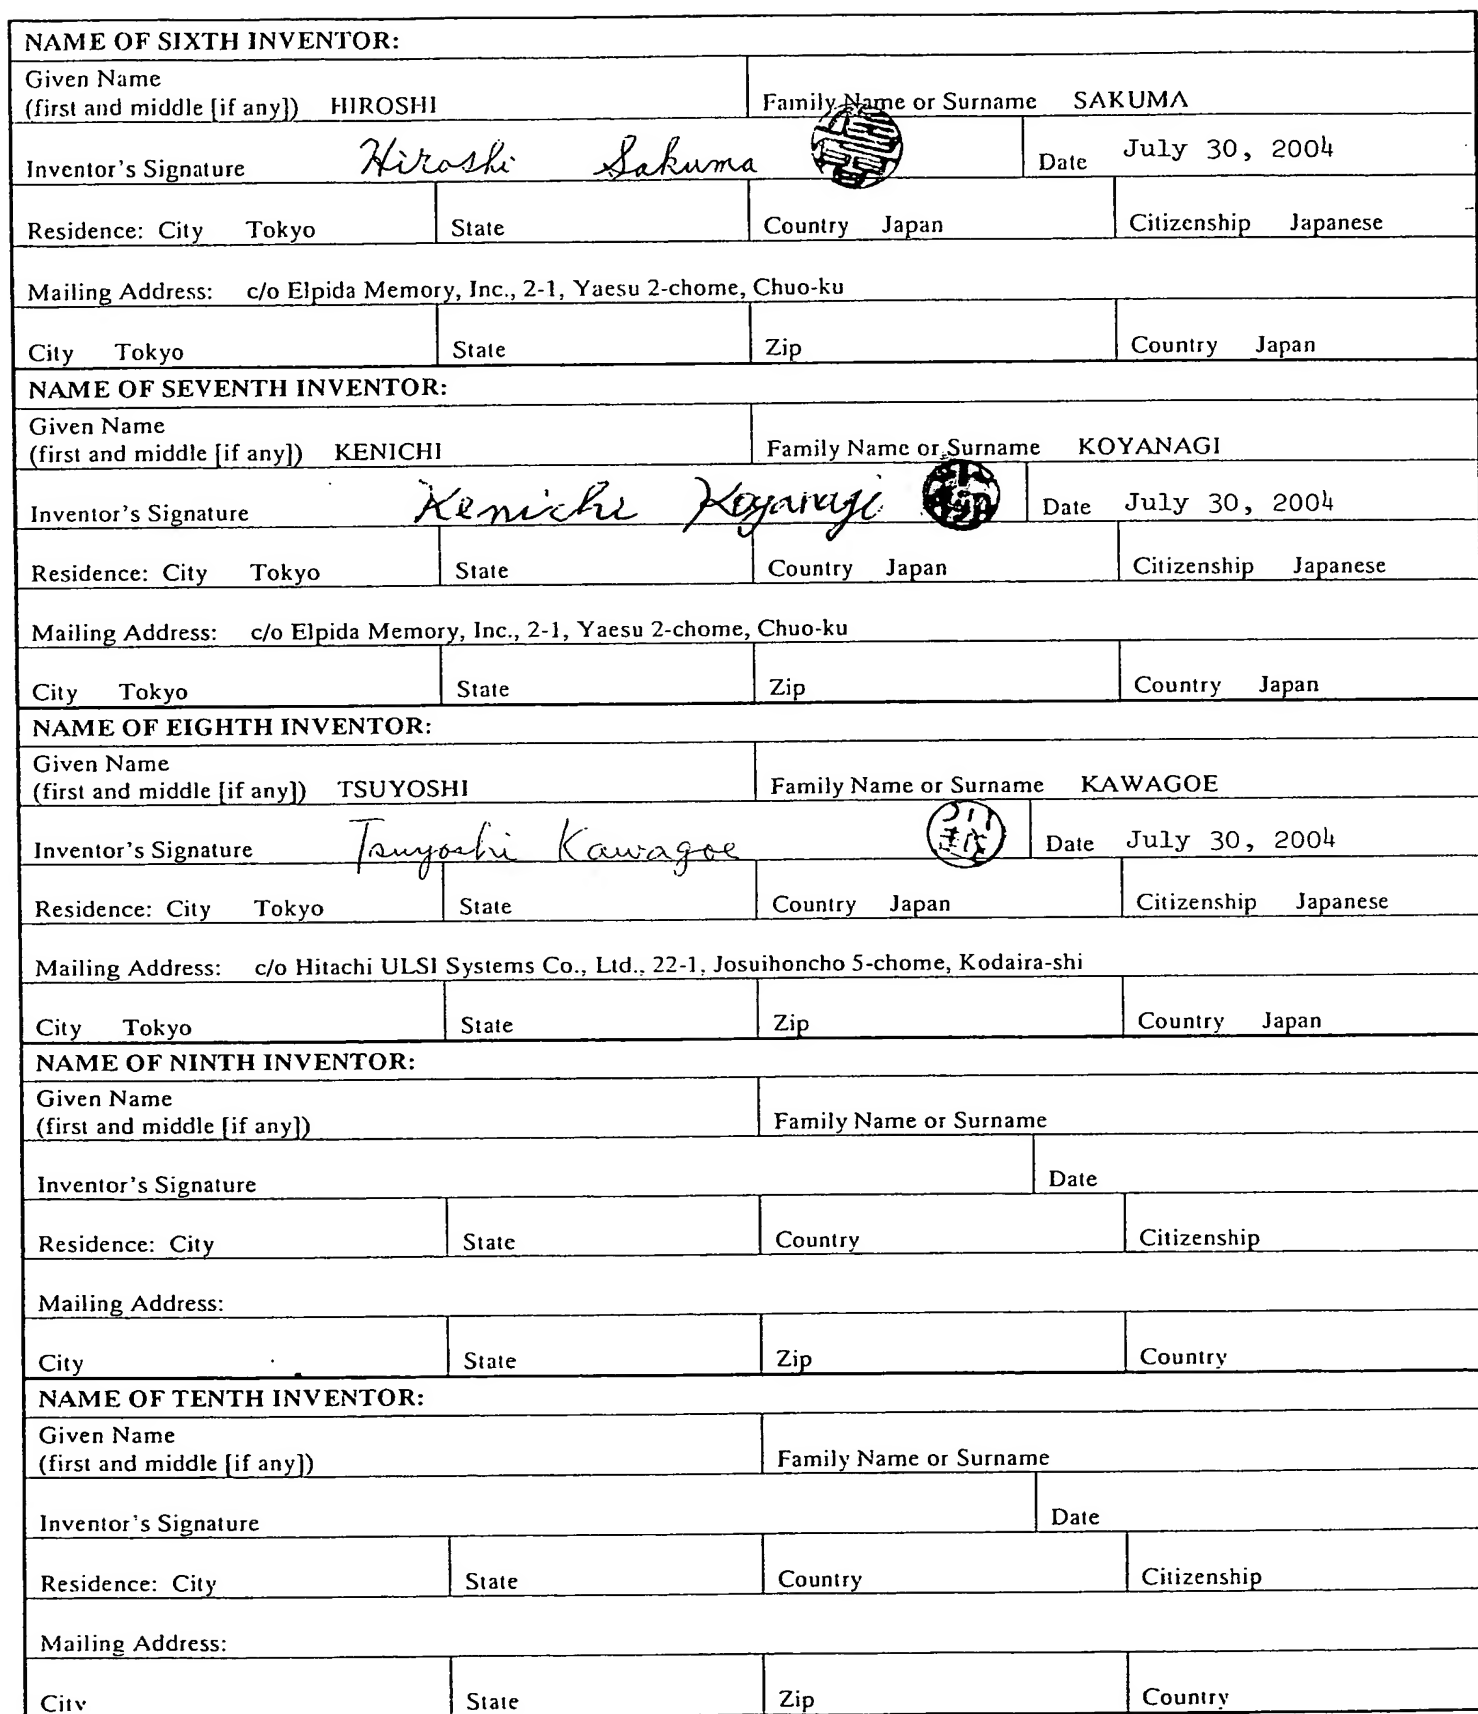 NAME OF SIXTH INVENTOR:
Given Name
(first and middle [if any]) HIROSHI Family Name or Surname SAKUMA
Inventor's Signature Hiroshi Sakuma Date July 30, 2004
Residence: City Tokyo State Country Japan Citizenship Japanese
Mailing Address: c/o Elpida Memory, Inc., 2-1, Yaesu 2-chome, Chuo-ku
City Tokyo State Zip Country Japan
NAME OF SEVENTH INVENTOR:
Given Name
(first and middle [if any]) KENICHI Family Name or Surname KOYANAGI
Inventor's Signature Kenichi Koyanagi Date July 30, 2004
Residence: City Tokyo State Country Japan Citizenship Japanese
Mailing Address: c/o Elpida Memory, Inc., 2-1, Yaesu 2-chome, Chuo-ku
City Tokyo State Zip Country Japan
NAME OF EIGHTH INVENTOR:
Given Name
(first and middle [if any]) TSUYOSHI Family Name or Surname KAWAGOE
Inventor's Signature Tsuyoshi Kawagoe Date July 30, 2004
Residence: City Tokyo State Country Japan Citizenship Japanese
Mailing Address: c/o Hitachi ULSI Systems Co., Ltd., 22-1, Josuihoncho 5-chome, Kodaira-shi
City Tokyo State Zip Country Japan
NAME OF NINTH INVENTOR:
Given Name
(first and middle [if any]) Family Name or Surname
Inventor's Signature Date
Residence: City State Country Citizenship
Mailing Address:
City State Zip Country
NAME OF TENTH INVENTOR:
Given Name
(first and middle [if any]) Family Name or Surname
Inventor's Signature Date
Residence: City State Country Citizenship
Mailing Address:
City State Zip Country